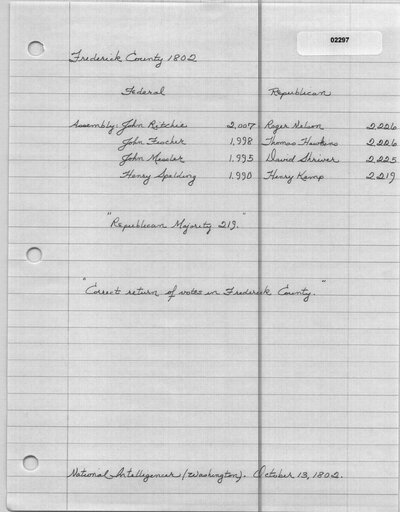 02297
Frederick County 1802
Federal Republican
Assembly: John Ritchie 2,007 Roger Nelson 2,226
John 1,998 Thomas Hawkins 2,226
John 1,995 David Shriver 2,225
Henry Spalding 1,990 Henry Kemp 2,219
"Republican Majority 219."
"Correct return of votes in Frederick County."
National Intelligencer (Washington). October 13, 1802.